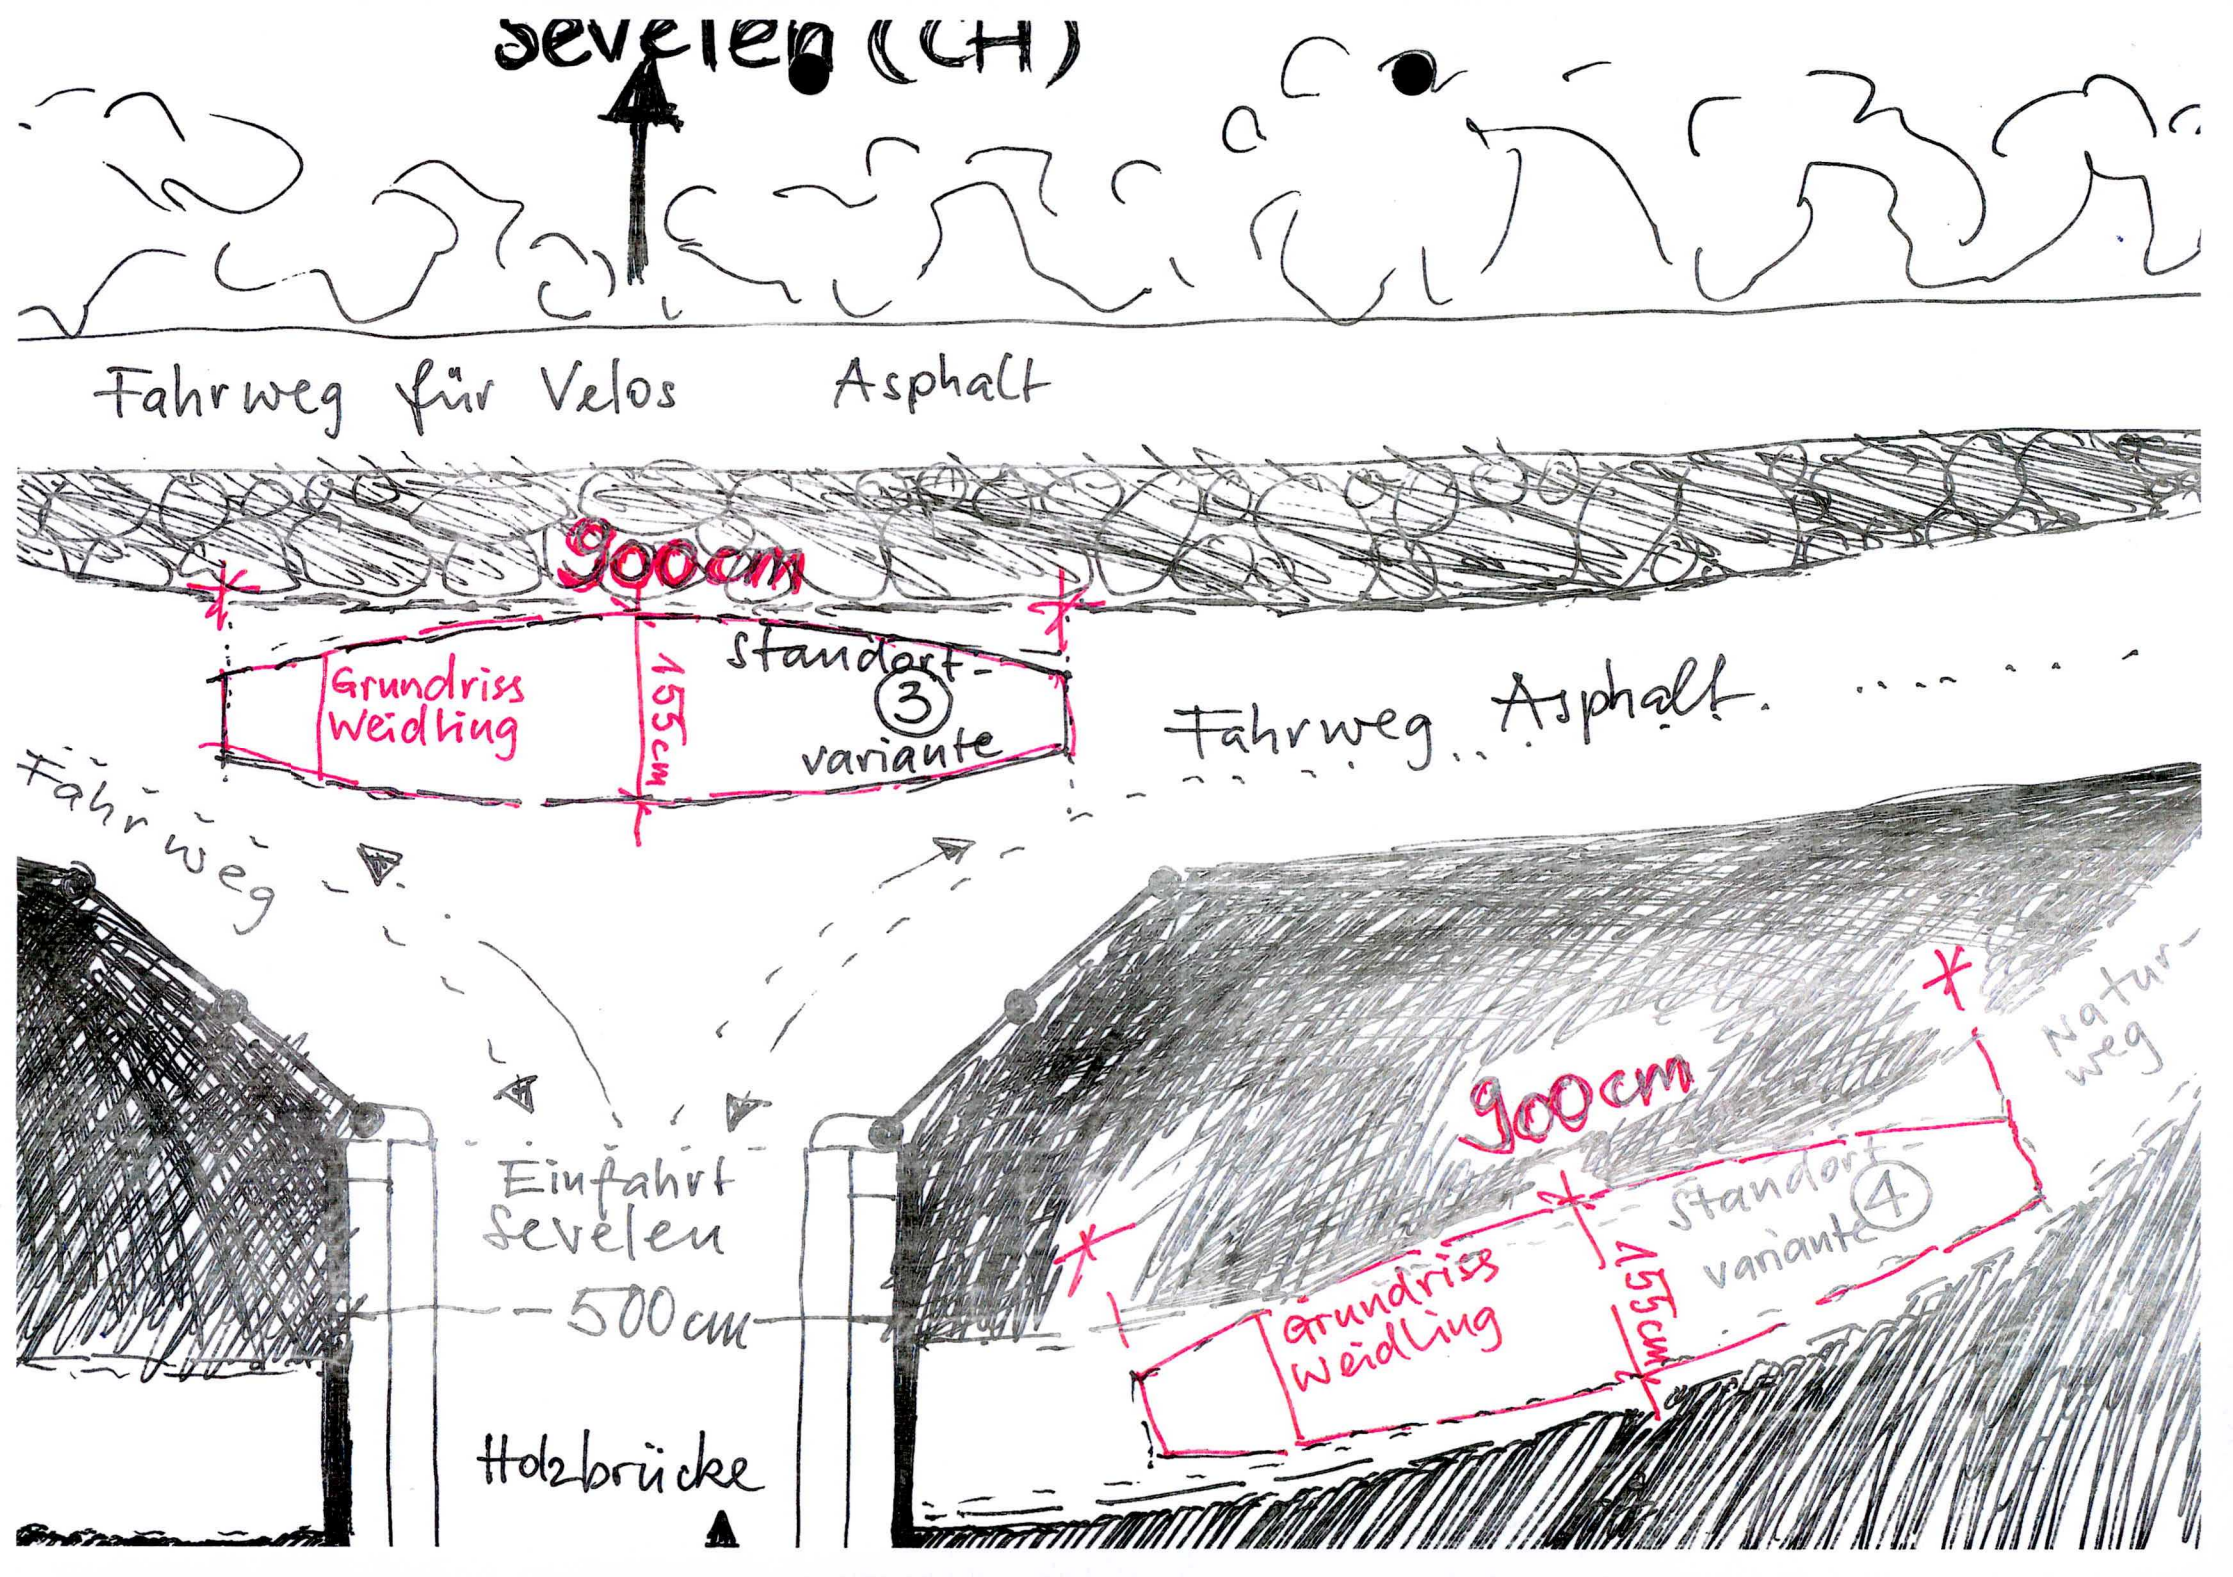 Sevelen (CH)
Fahrweg für Velos Asphalt
900cm
Grundriss
Weidling
155cm
Standort-
3
variante
Fahrweg Asphalt
Fahrweg
Natur-
weg
900cm
Standort-
variante 4
Grundriss
Weidling
155cm
Einfahrt
Sevelen
500cm
Holzbrücke